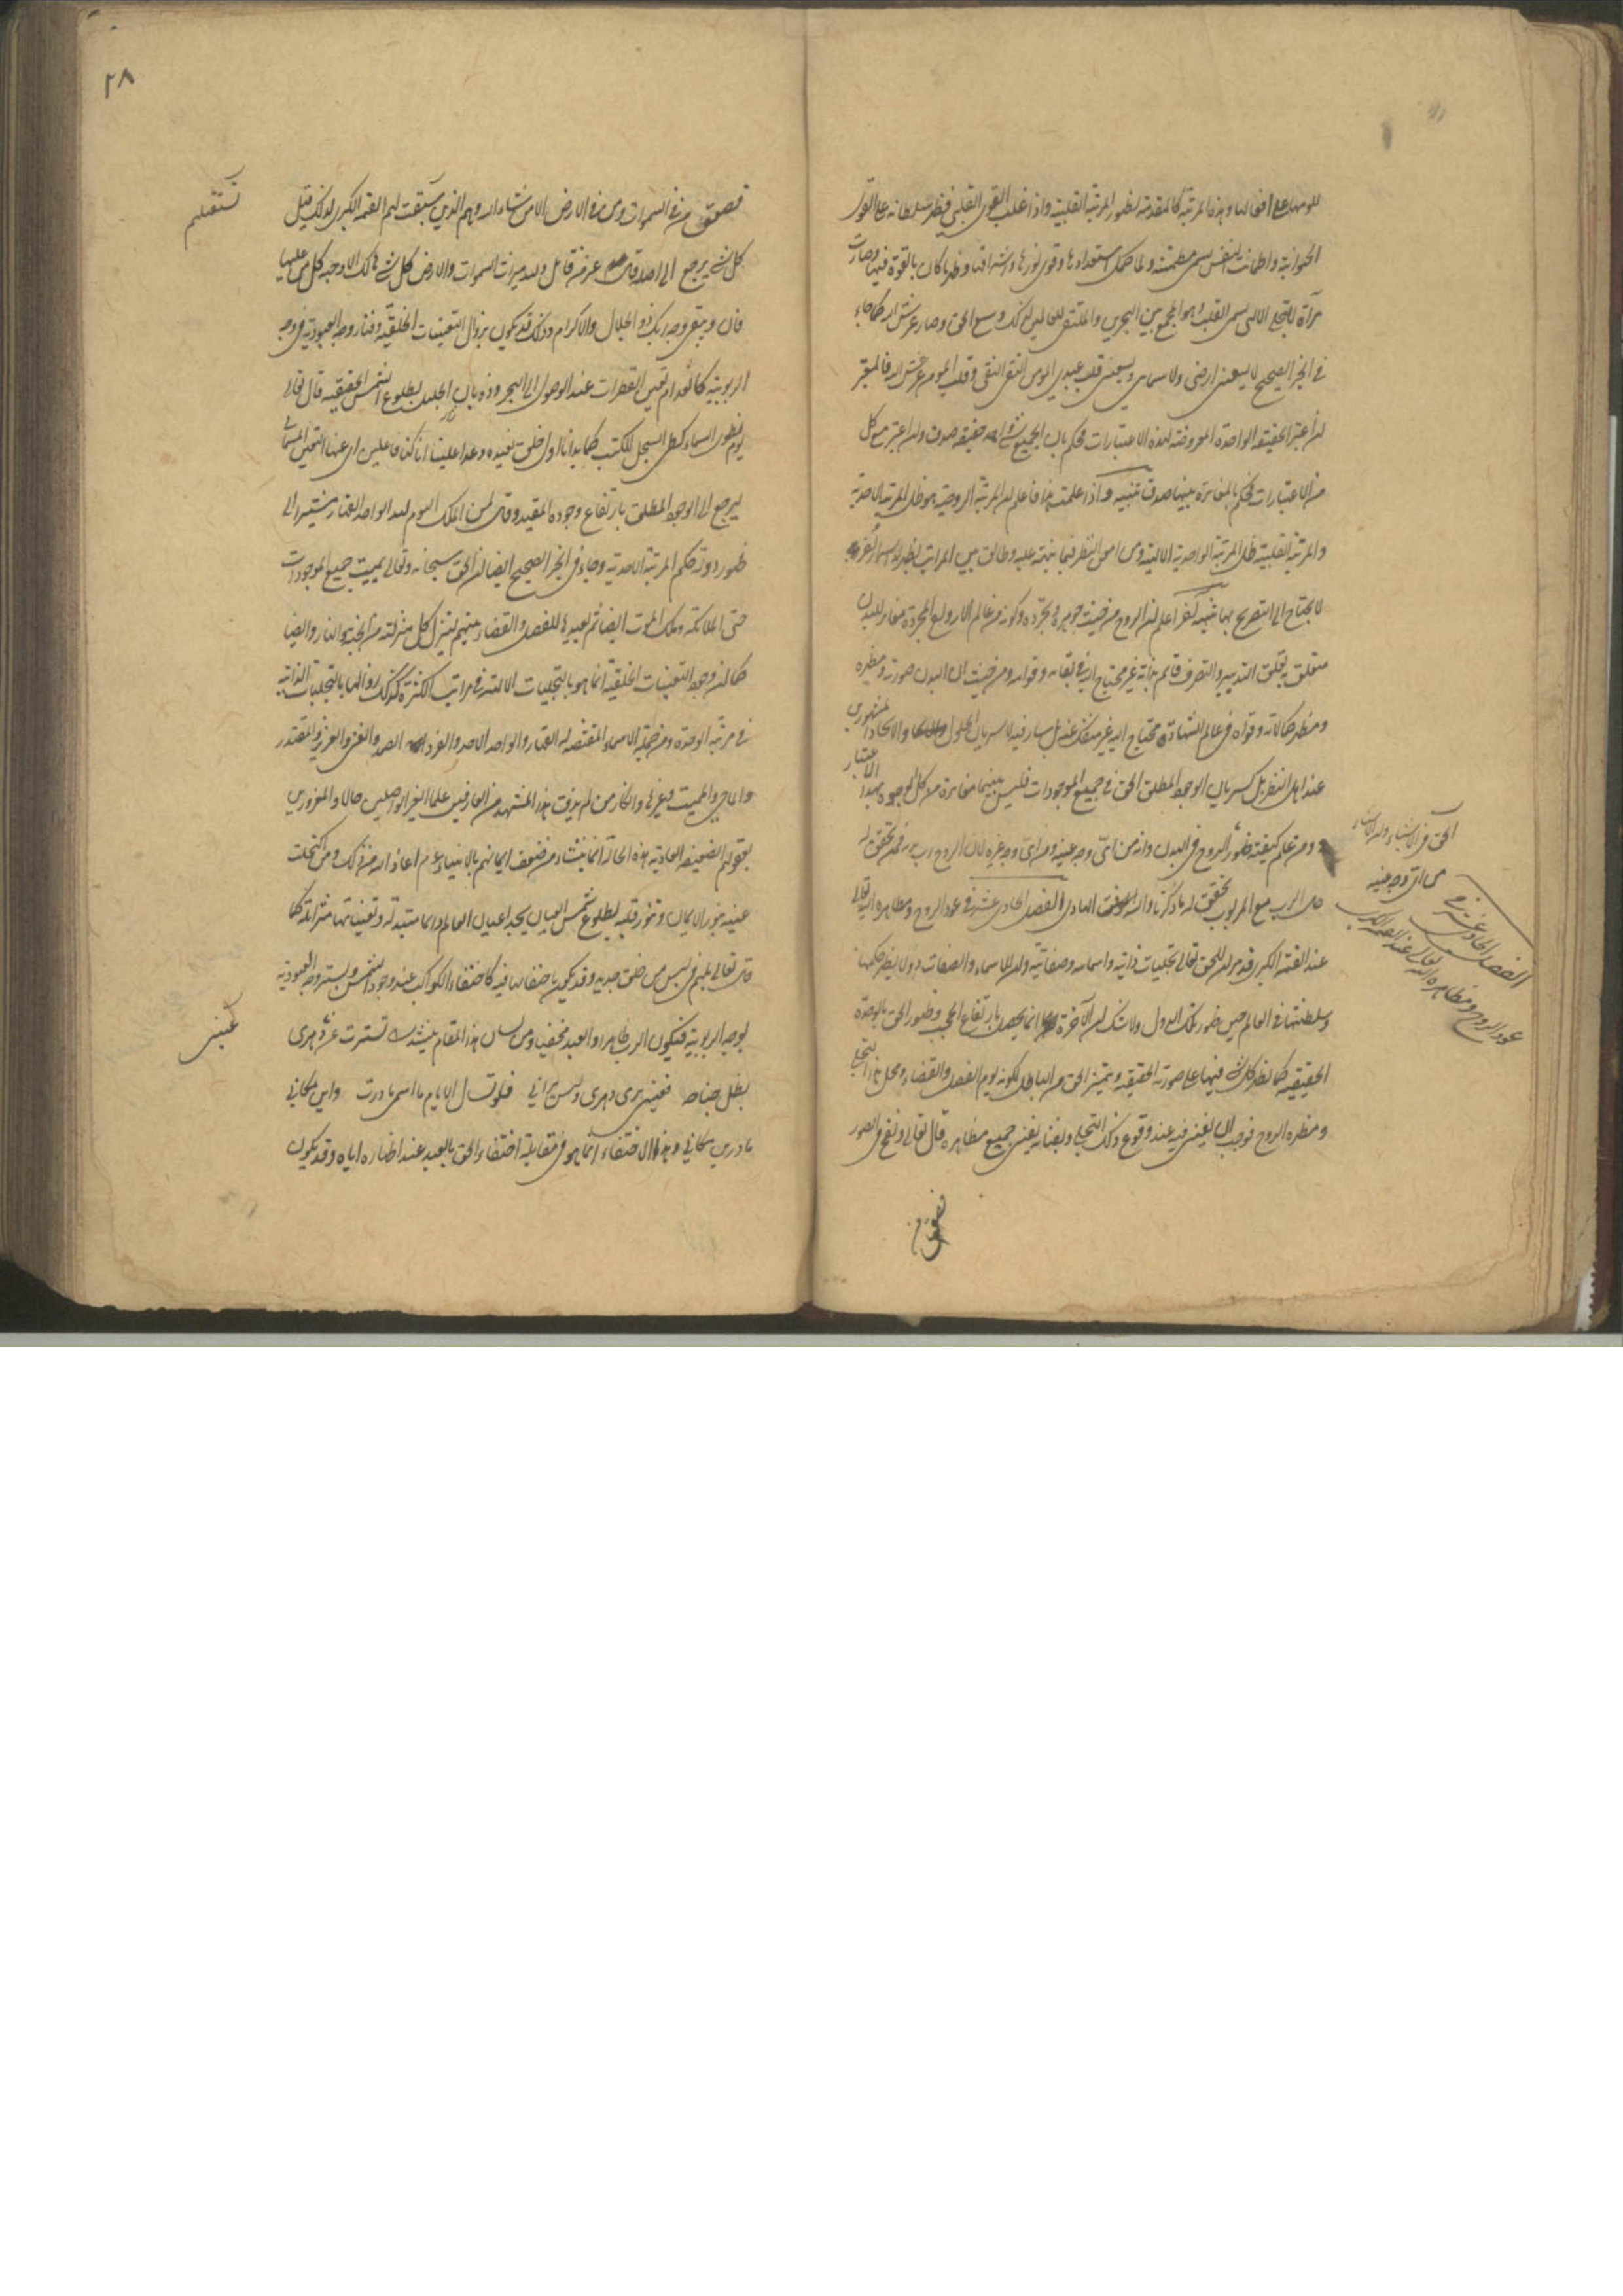 للومها على افعالها وهذه المرتبة كالمقدمة لظهور المرتبة القلبية واذا غلب النور القلبي وظهر سلطانه على القوى
الحيوانية واطمأنت النفس سمى مطمئنة ولما كمل استعدادها وقوى نورها واشراقها وظهر ما كان بالقوة فيها وصارت
مرآة للتجلى الالهى سمى القلب وهو المجمع بين البحرين والملتقى للعالمين لذلك وسع الحق وصار عرش الله كما جاء
فى الخبر الصحيح لا يسعنى ارضى ولا سمائى ويسعنى قلب عبدى المومن التقى النقى وقلب المومن عرش الله فالمعتبر
ان اعتبر الحقيقة الواحدة المعروضة لهذه الاعتبارات وحكم بان الجميع شئ واحد حقيقة صدق وان اعتبر مع كل
من الاعتبارات وحكم بالمغايرة بينها صدق تنبيه واذا علمت هذا فاعلم ان المرتبة الروحية هو ظل المرتبة الاحدية
والمرتبة القلبية ظل المرتبة الواحدية الالهية ومن امعن النظر فيما نبهت عليه وطابق بين المراتب يظهر له اسرار اخر
لا يحتاج الى التصريح بها تنبيه آخر اعلم ان الروح من حيث جوهره وتجرده وكونه من عالم الارواح المجردة مغاير للبدن
متعلق به تعلق التدبير والتصرف قائم بذاته غير محتاج اليه فى بقائه وقوامه ومن حيث ان البدن صورته ومظهره
ومظهر كمالاته وقواه فى عالم الشهادة محتاج اليه غير منفك عنه بل سار فيه لا سريان الحلول والاتحاد المشهورين
عند اهل النظر بل كسريان الوجود المطلق الحق فى جميع الموجودات فليس بينهما مغايرة من كل الوجوه بهذا الاعتبار
ومن علم كيفية ظهور الروح فى البدن وانه من اى وجه عينه ومن اى وجه غيره لان الروح رب بدنه فمن تحقق له
حال الرب مع المربوب تحقق له ما ذكرنا والله الهادى الفصل الحادى عشر فى عود الروح ومظاهره اليه تعالى
عند القيمة الكبرى قد مر ان للحق تعالى تجليات ذاتية واسمائية وصفاتية وان للاسماء والصفات دولا يظهر حكمها
وسلطنتها فى العالم حين ظهور تلك الدول ولا شك ان الآخرة انما يحصل بارتفاع الحجب وظهور الحق بالوحدة
الحقيقية كما يظهر كل شئ فيها على صورته الحقيقية ويتميز الحق من الباطل لكونه يوم الفصل والقضاء ومحل هذا التجلى
ومظهره الروح فوجب ان يفنى فيه عند وقوع ذلك التجلى وبفنائه يفنى جميع مظاهره قال تعالى ونفخ فى الصور
فصعق من
الحق فى الاشياء وان الاشياء
من اى وجه عينه
الفصل الحادى عشر فى
عود الروح ومظاهره اليه تعالى عند القيمة الكبرى
٢٨
فصعق من فى السموات ومن فى الارض الا من شاء الله وهم الذين سبقت لهم القيمة الكبرى لذلك قيل
كل شئ يرجع الى اصله قال عز من قائل ولله ميراث السموات والارض كل شئ هالك الا وجهه كل من عليها
فان ويبقى وجه ربك ذو الجلال والاكرام وذلك قد يكون بزوال التعينات الخلقية وفناء وجه العبودية فى وجه
الربوبية كانعدام تعين القطرات عند الوصول الى البحر وذوبان الجليد بطلوع الشمس الحقيقية قال تعالى
يوم نطوى السماء كطى السجل للكتب كما بدأنا اول خلق نعيده وعدا علينا انا كنا فاعلين اى عنها التعين السمائى
ليرجع الى الوجود المطلق بارتفاع وجوده المقيد وقال لمن الملك اليوم لله الواحد القهار مشيرا الى
ظهور دولة حكم المرتبة الاحدية وجاء فى الخبر الصحيح ايضا ان الحق سبحانه وتعالى يميت جميع الموجودات
حتى الملائكة وملك الموت ايضا ثم يعيدها للفصل والقضاء بينهم لينزل كل منزلته من الجنة والنار وايضا
كما ان وجود التعينات الخلقية انما هو بالتجليات الالهية فى مراتب الكثرة كذلك زوالها بالتجليات الذاتية
فى مرتبة الوحدة ومن جملة الاسماء المقتضية له القهار والواحد الاحد والفرد الصمد والغنى والعزيز والمقتدر
والماحى والمميت وغيرها وانكار من لم يذق هذا المشهد من العارفين علما الغير الواصلين حالا والمغرورين
بعقولهم الضعيفة العادية هذه الحالة انما ينشاء من ضعف ايمانهم بالانبياء عم اعاذنا الله من ذلك ومن اكتحلت
عينه بنور الايمان وتنور قلبه بطلوع شمس العيان يجد اعيان العالم دائما متبدلة وتعيناتها متزايلة كما
قال تعالى بل هم فى لبس من خلق جديد وقد يكون باختفائها فيه كاختفاء الكواكب عند وجود الشمس ويستر وجه العبودية
بوجه الربوبية فيكون الرب ظاهرا والعبد مخفيا ومن لسان هذا المقام ينشد تسترت عن دهرى
بظل جناحه فعينى يرى دهرى وليس يرانى فلو تسئل الايام ما اسمى ما درت واين مكانى
ما درين مكانى وهذا الاختفاء انما هو فى مقابلة اختفاء الحق بالعبد عند اظهاره اياه وقد يكون